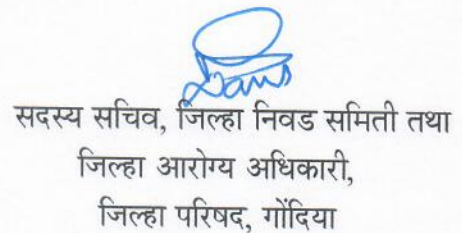 सदस्य सचिव, जिल्हा निवड समिती तथा
जिल्हा आरोग्य अधिकारी,
जिल्हा परिषद, गोंदिया